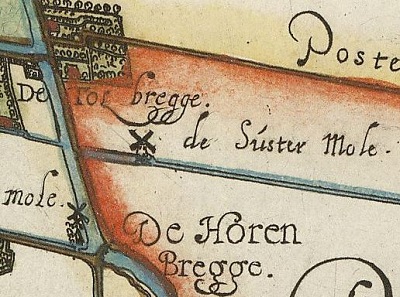 Poste
De Tol bregge.
de Súster Mole.
mole.
De Hören
Bregge.